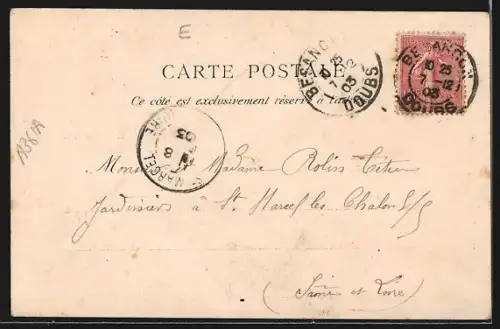 E
CARTE POSTALE
Ce côté est exclusivement réservé à l'a
BESANÇ
10 25
7 12
03
DOUBS
BESANÇON
10 25
7 12
03
DOUBS
ST MARCEL
8
03
Monsieur Madame Rolin Titien
Jardiniers à St Marcel les Chalon s/s
(Saône et Loire)